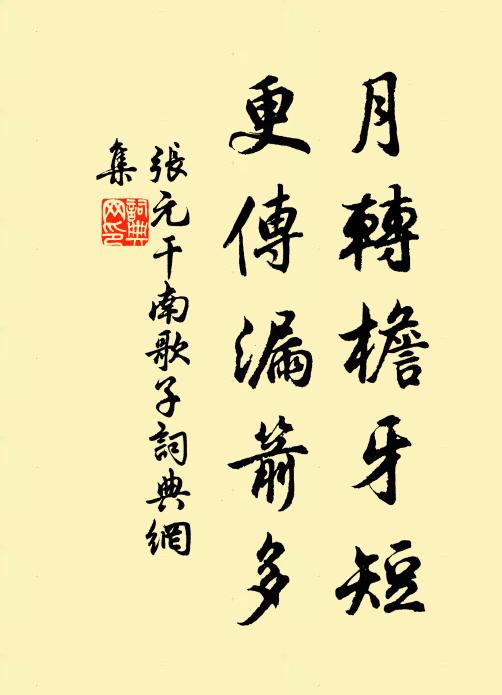 月轉檐牙短
更傳漏箭多
張元干南歌子詞典網
集
詞典
网印